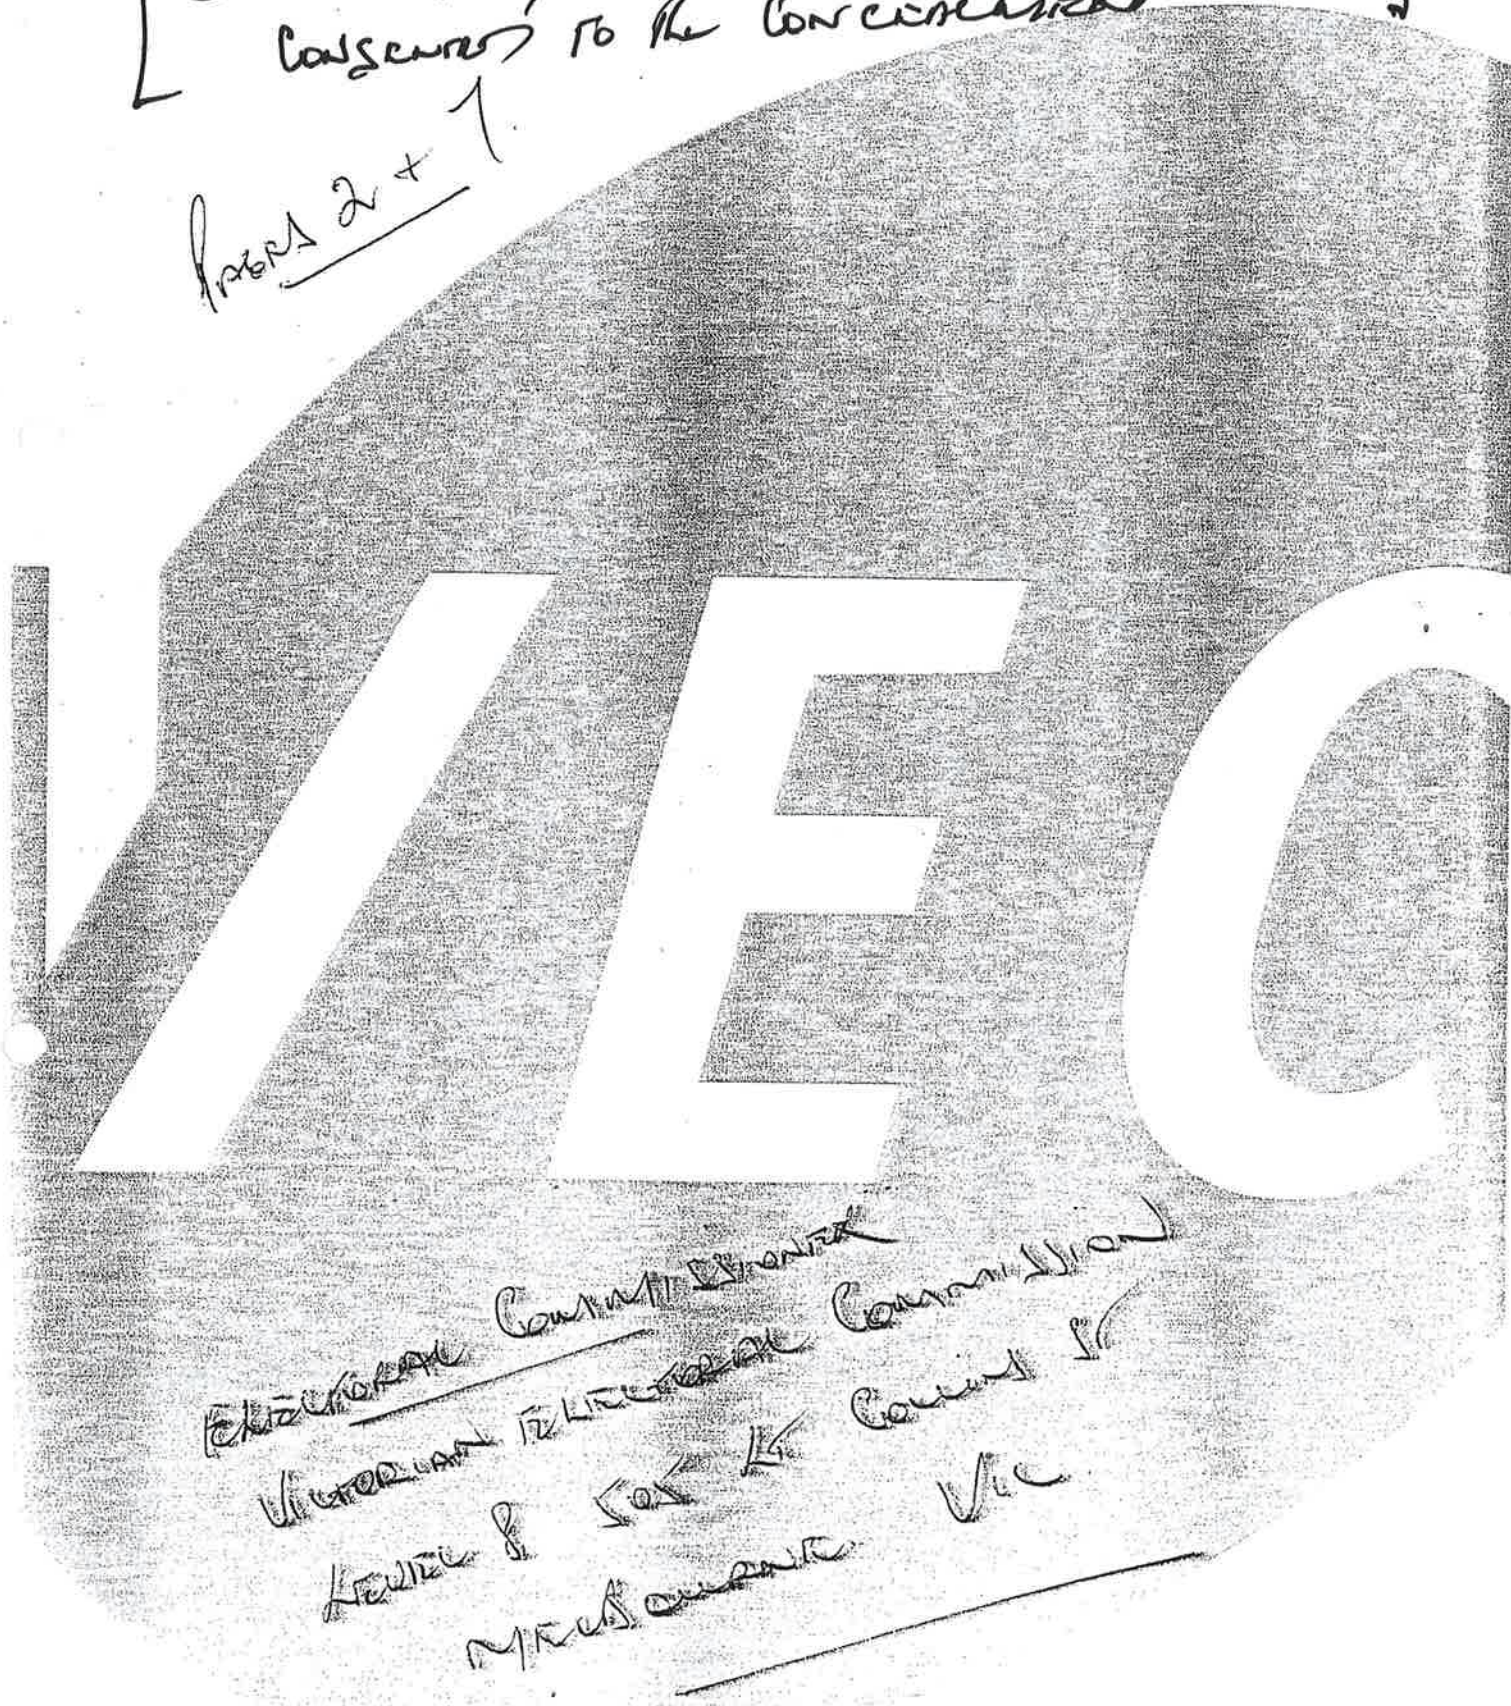 CONSENTED TO THE
PAGES 2 + 7.
VEC
ELECTORAL COMMISSIONER
VICTORIAN ELECTORAL COMMISSION
LEVEL 8 505 LT COLLINS ST
MELBOURNE VIC